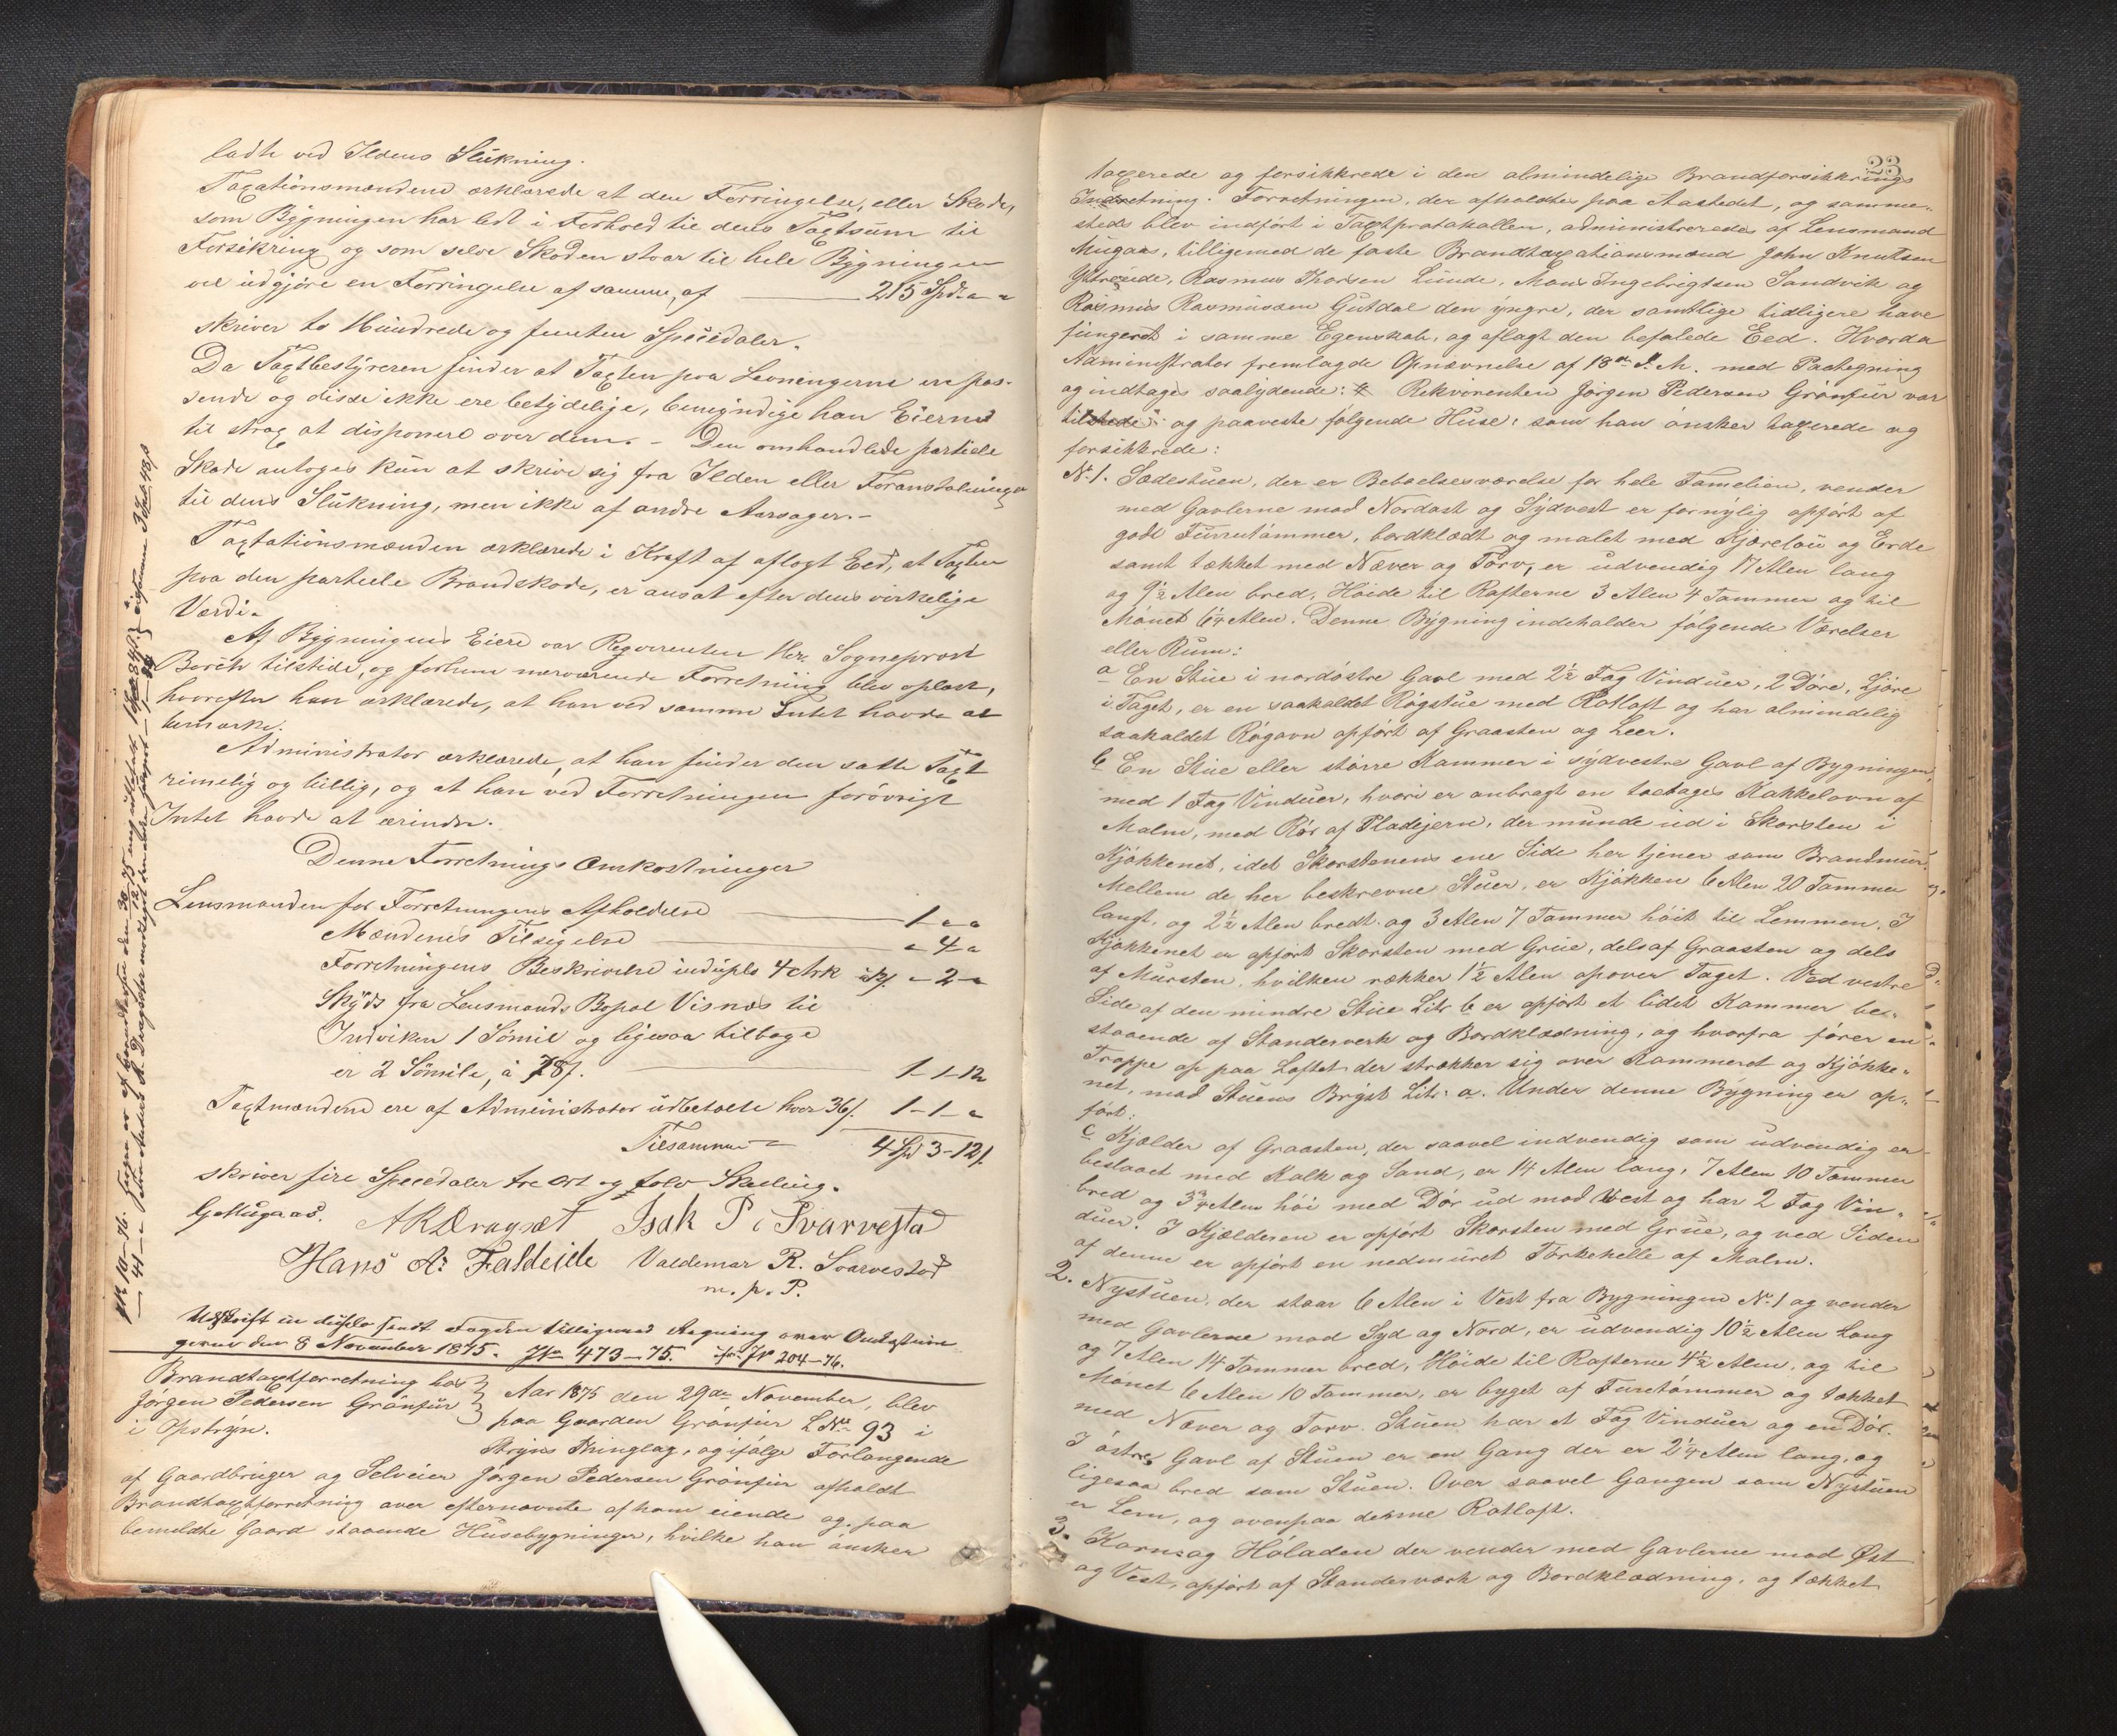 ladte ved Ildens Slukning.
Taxationsmændene erklærede at den Forringelse, eller Skade,
som Bygningen har lidt i Forhold til dens Taxtsum til
Forsikring og som selve Skaden staar til hele Bygningen
vil udgjöre en Forringelse af samme, af 215 Spd. " "
skriver to Hundrede og femten Speciedaler.
Da Taxtbestyreren finder at Taxten paa Levningerne er pas-
sende og disse ikke ere betydelige, bemyndige han Eierne
til strax at disponere over dem. – Den omhandlede partielle
Skade antoges kun at skrive sig fra Ilden eller Foranstaltninger
til dens Slukning, men ikke af andre Aarsager. –
Taxtationsmænden erklærede i Kraft af aflagt Eed, at Taxten
paa den partielle Brandskade, er ansat efter dens virkelige
Værdi.
Af Bygningens Eiere var Reqvirenten Hr. Sogneprest
Borch tilstede, og for ham nærværende Forretning blev oplæst,
hvorefter han erklærede, at han ved samme Intet havde at
bemærke.
Administrator erklærede, at han finder den satte Taxt
rimelig og billig, og at han ved Forretningen forövrigt
Intet havde at erindre.
Denne Forretnings Omkostninger
Lensmanden for Forretningens Afholdelse 1 " "
Mændenes Tilsigelse " 4 "
Forretningens Beskrivelse in duplo 4 Ark " – 2 – "
Skyds fra Lensmands Bopæl Visnæs til
Indviken 1 Sömil og ligesaa tilbage
er 2 Sömile, à 78 ß. 1 – 1 – 12
Taxtmændene ere af Administrator udbetalte hver 36 ß. 1 – 1 – "
Tilsammen 4 Spd 3 – 12 ß.
skriver fire Speciedaler tre Ort og tolv Skilling.
G Mugaas. A K Dragsæt Isak P. Svarvestad
Hans A: Faldeide Valdemar R. Svarvestad
m. p. P.
Udskrift in duplo sendt Fogden tilligemed Regning over Omkostnin
gerne den 8 November 1875. Jr. 473–75. jfr. Jr 204–76.
Brandtaxtforretning hos
Jörgen Pedersen Grönfür
i Opstryn.
Aar 1875 den 29de November, blev
paa Gaarden Grönfür L. No 93 i
Stryns Thinglag, og ifölge Forlangende
af Gaardbruger og Selveier Jörgen Pedersen Grönfür afholdt
Brandtaxtforretning over efternævnte af ham eiende og paa
bemeldte Gaard staaende Husebygninger, hvilke han önsker
23
taxerede og forsikkrede i den almindelige Brandforsikkrings
Indretning. Forretningen, der afholdtes paa Aastedet, og samme-
steds blev indfört i Taxtprotokollen, administreredes af Lensmand
Mugaas, tilligemed de faste Brandtaxationsmænd John Knutsen
Ytreeide, Rasmus Thorsen Lunde, Mons Ingebrigtsen Sandvik og
Rasmus Rasmussen Gutdal den yngre, der samtlige tidligere have
fungeret i samme Egenskab, og aflagt den befalede Eed. Hvorda
Administrator fremlagde Opnævnelse af 18de d. M. med Paategning
og indtages saalydende: Rekvirenten Jörgen Pedersen Grönfür var
tilstede og paaveste fölgende Huse, som han önsker taxerede og
forsikkrede:
No 1. Sædestuen, der er Beboelsesværelse for hele Famelien, vender
med Gavlerne mod Nordost og Sydvest er fornylig opfört af
godt Furrutömmer, bordklædt og malet med Tjære og Erde
samt tækket med Næver og Torv, er udvendig 17 Alen lang
og 9½ Alen bred, Höide til Rafterne 3 Alen 4 Tommer og til
Mönet 6¼ Alen. Denne Bygning indeholder fölgende Værelser
eller Rum:
a En Stue i nordöstre Gavl med 2½ Fag Vinduer, 2 Döre, Ljöre
i Taget, er en saakaldet Rögstue med Rotloft og har almindelig
saakaldet Rögovn opfört af Graasten og Leer.
b En Stue eller större Kammer i sydvestre Gavl af Bygningen,
med 1 Fag Vinduer, hvori er anbragt en toetages Kakkelovn af
Malm, med Rör af Pladejern, der munde ud i Skorsten i
Kjökkenet, idet Skorstenens ene Side her tjener som Brandmur.
Mellem de her beskrevne Stuer, er Kjökken 6 Alen 20 Tommer
langt, og 2½ Alen bredt, og 3 Alen 7 Tommer höit til Lemmen. I
Kjökkenet er opfört Skorsten med Grue, dels af Graasten og dels
af Mursten, hvilken rækker 1½ Alen opover Taget. Ved vestre
Side af den mindre Stue Litr b er opfört et lidet Kammer be-
staaende af Standerverk og Bordklædning, og hvorfra förer en
Trappe op paa Loftet der strækker sig over Kammeret og Kjökke-
net, mod Stuens Bryst Litr: a. Under denne Bygning er op-
fört:
c Kjælder af Graasten, der saavel indvendig som udvendig er
beslaaet med Kalk og Sand, er 14 Alen lang, 7 Alen 10 Tommer
bred og 3¾ Alen höi med Dör ud mod Vest og har 2 Fag Vin-
duer. I Kjælderen er opfört Skorsten med Grue, og ved Siden
af denne er opfört en nedmuret Törkehelle af Malm.
2. Nystuen, der staar 6 Alen i Vest fra Bygningen No 1 og vender
med Gavlerne mod Syd og Nord, er udvendig 10½ Alen Lang
og 7 Alen 14 Tommer bred, Höide til Rafterne 4½ Alen, og til
Mönet 6 Alen 10 Tommer, er byget af Furetömmer og tækket
med Næver og Torv. Stuen har et Fag Vinduer og en Dör.
I östre Gavl af Stuen er en Gang der er 2¼ Alen lang, og
ligesaa bred som Stuen. Over saavel Gangen som Nystuen
er Lem, og ovenpaa denne Rotloft.
3. Korn- og Höladen der vender med Gavlerne mod Öst
og Vest, opfört af Standerværk og Bordklædning, og tækket